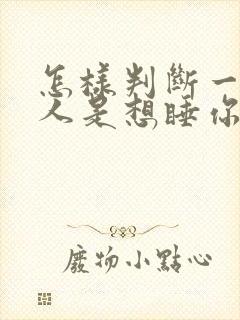 怎樣判斷一
人是想睡你
廢物小點心